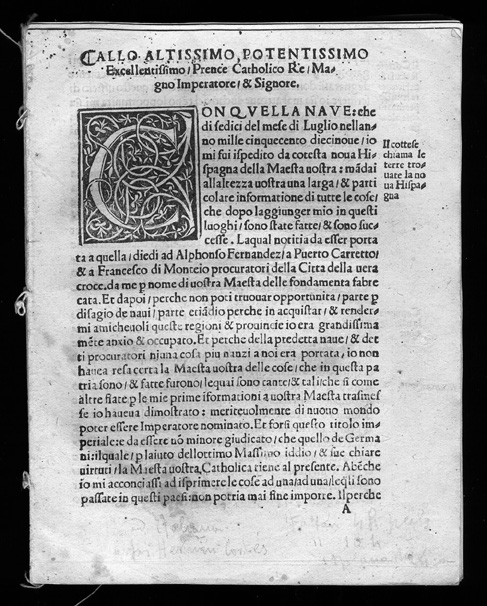 CALLO ALTISSIMO, POTENTISSIMO
Excellentissimo/Prence Catholico Re/Ma=
gno Imperatore/& Signore.
CON QVELLA NAVE: che
di sedici del mese di Luglio nellan=
no mille cinquecento diecinoue/io
mi fui ispedito da cotesta noua Hi=
spagna della Maesta uostra: mãdai
allaltezza uostra una larga/& parti
colare informatione di tutte le cose/
che dopo laggiunger mio in questi
luoghi/sono state fatte/& sono suc=
cesse. Laqual notitia da esser porta
ta a quella/diedi ad Alphonso Fernandez/a Puerto Carretto/
& a Francesco di Monteio procuratori della Citta della uera
croce. da me p nome di uostra Maesta delle fondamenta fabre
cata. Et dapoi/perche non poti truouar opportunita/parte p
disagio de naui/parte eriãdio perche in acquistar/& render=
mi amicheuoli queste regioni & prouincie io era grandissima
mẽte anxio & occupato. Et perche della predetta naue/& det
ti procuratori niuna cosa piu nanzi a noi era portata, io non
hauea resa certa la Maesta uostra delle cose/che in questa pa
tria sono/& fatte furono/lequai sono tante/& tali/che si come
altre fiate p le mie prime iformationi a uostra Maesta trasmes
se io haueua dimostrato: meriteuolmente di nuouo mondo
poter essere Imperatore nominato. Et forsi questo titolo im=
periale: e da essere nõ minore giudicato/che quello de Germa
ni: ilquale/plaiuto dellottimo Massimo iddio/& sue chiare
uirtuti/la Maesta uostra, Catholica tiene al presente. Abẽche
io mi acconciassi ad isprimere le cose ad una/ad una/leqli sono
passate in questi paesi: non potria mai fine imporre. Ilperche
A
Il cortese
chiama le
terre tro=
uare la no
ua Hispa=
gna